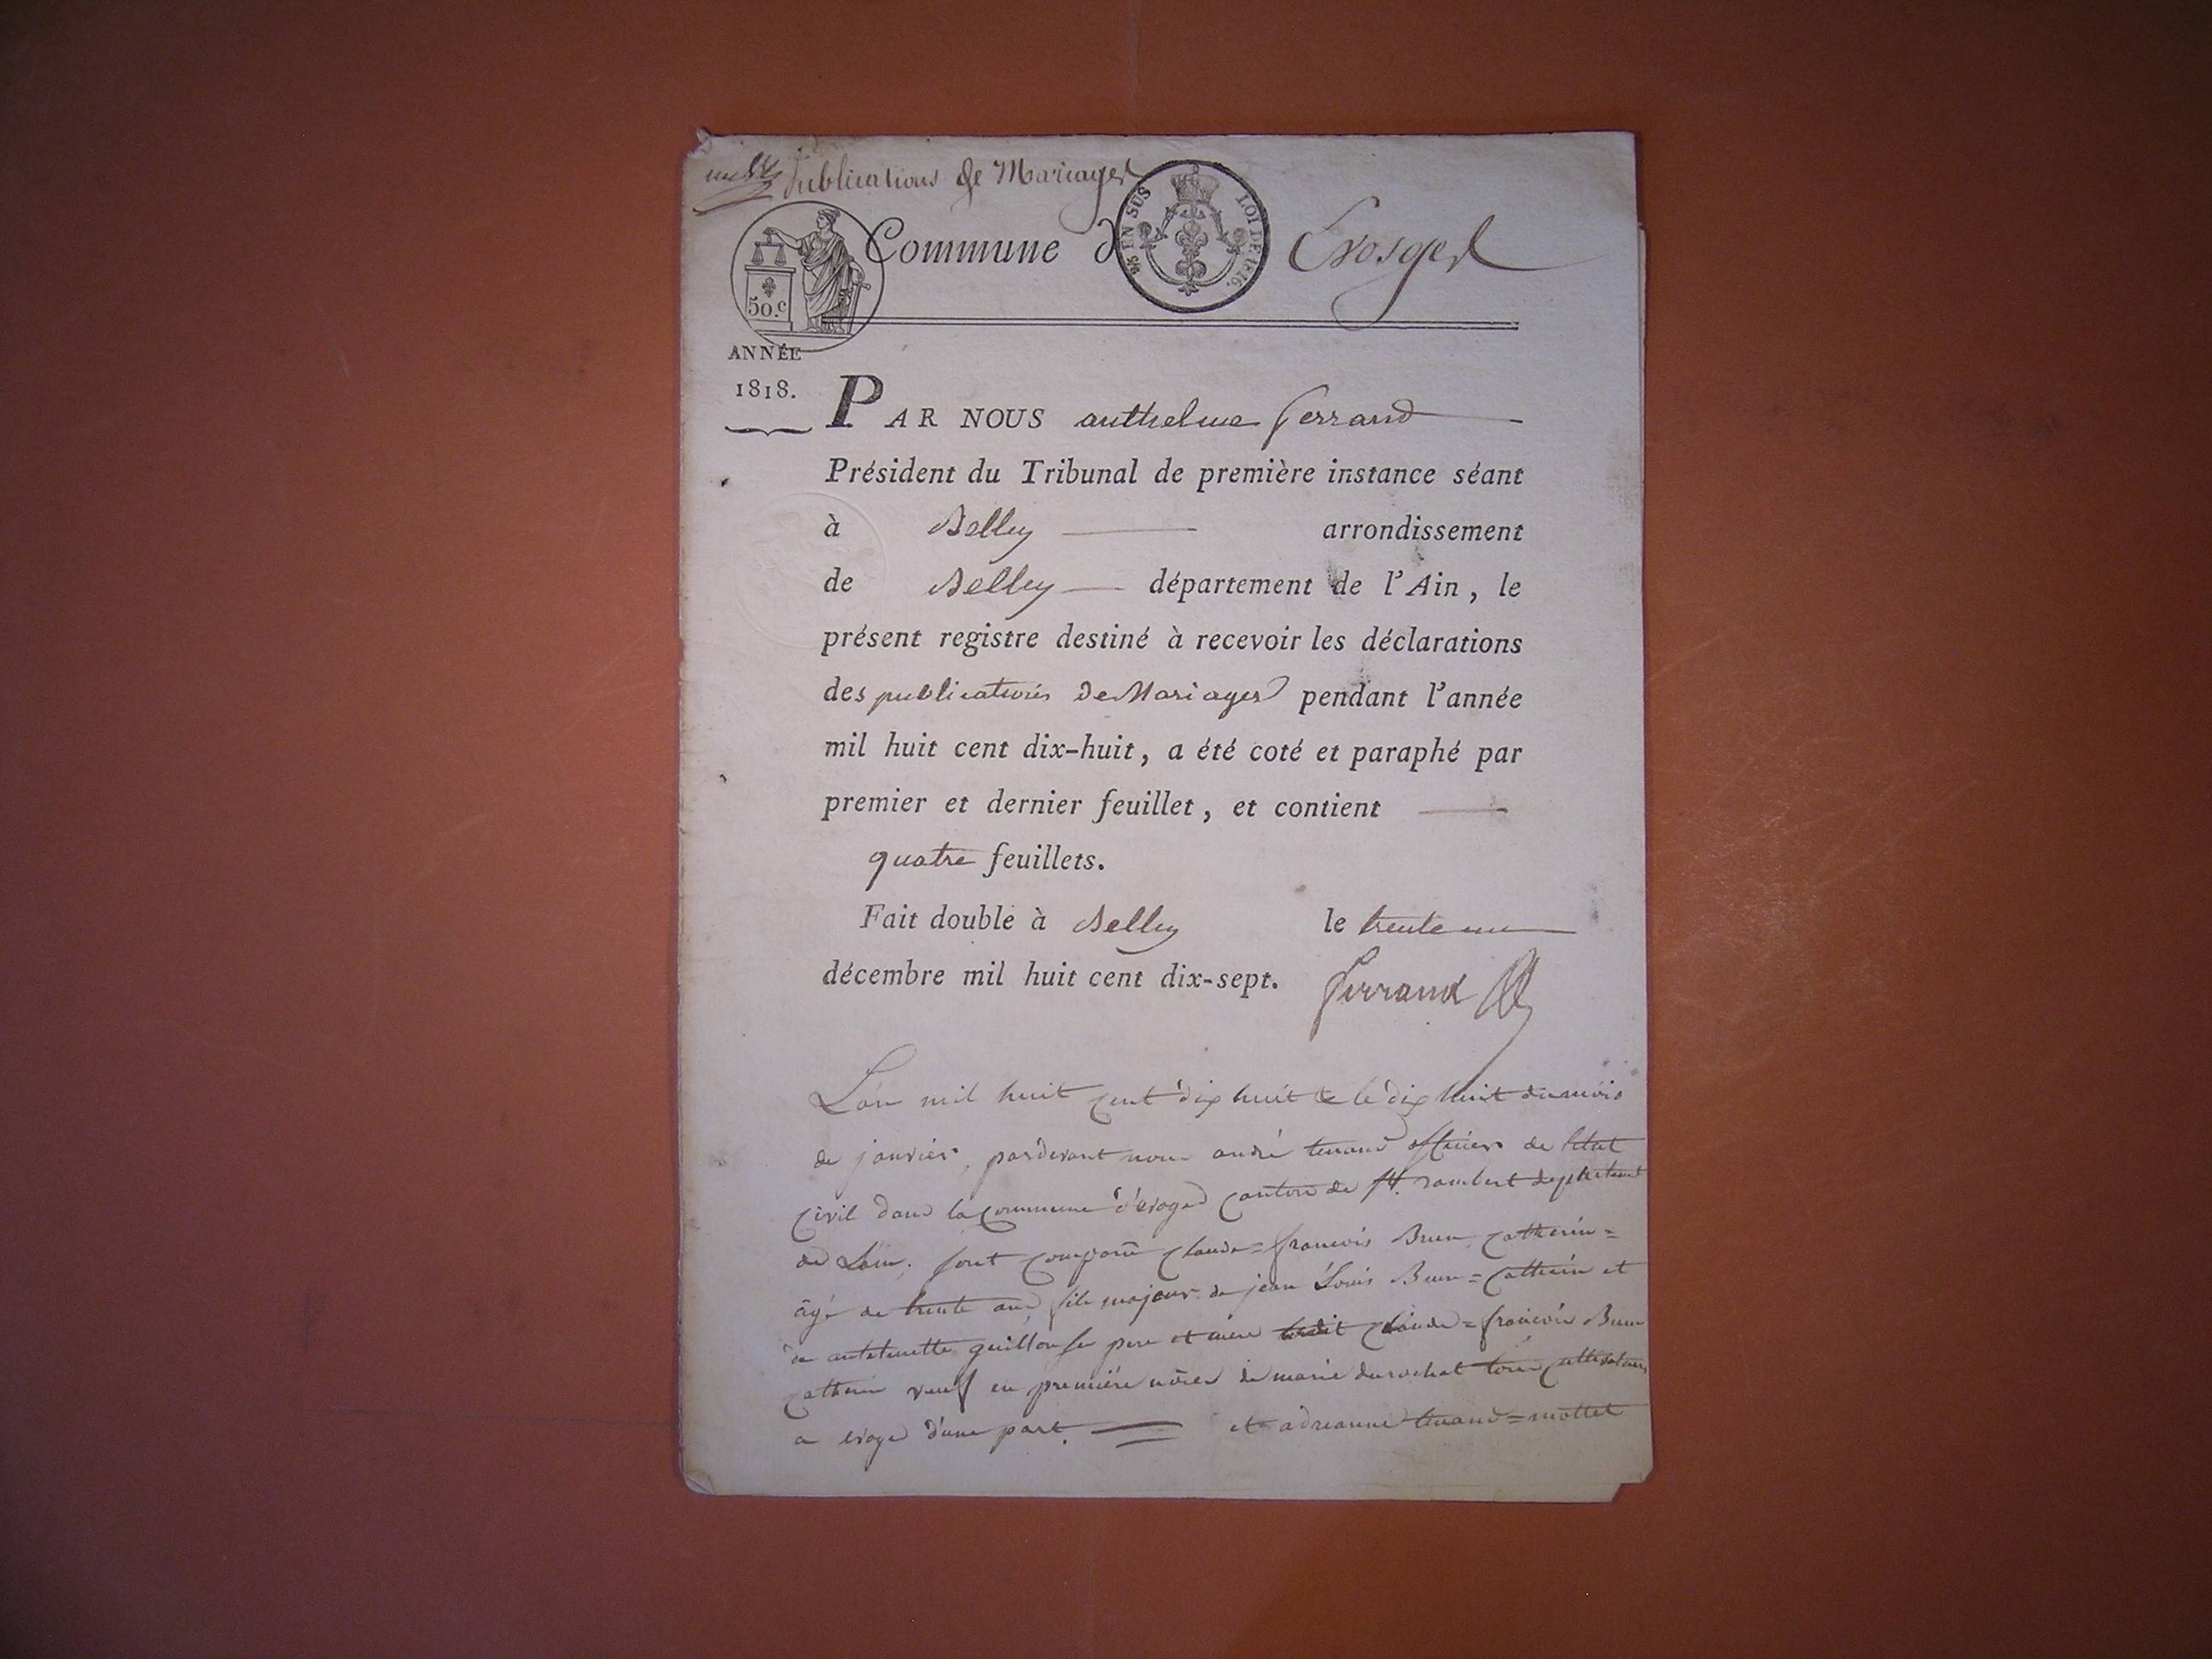 Publications de Mariages
Commune d Evosges
EN SUS LOI DE 1816.
50.c
ANNÉE
1818.
PAR NOUS anthelme ferrand
Président du Tribunal de première instance séant
à Belley arrondissement
de Belley département de l'Ain, le
présent registre destiné à recevoir les déclarations
des publications de Mariages pendant l'année
mil huit cent dix-huit, a été coté et paraphé par
premier et dernier feuillet, et contient
quatre feuillets.
Fait double à Belley le trente un
décembre mil huit cent dix-sept. ferrand
L'an mil huit cent dix huit & le dix huit du mois
de janvier, pardevant nous andré tenand officier de létat
Civil dans la Commune d'évoges Canton de st. rambert departement
de Lain, sont comparu Claude=francois Brun Catherin=
âgé de trente ans, fils majeur de jean Louis Brun=Catherin et
de antoinette guillon ses pere et mere ledit Claude=francois Brun
Catherin veuf en première nôces de marie durochat tous cultivateurs
a evoges d'une part. et adreanne tenand=mottet